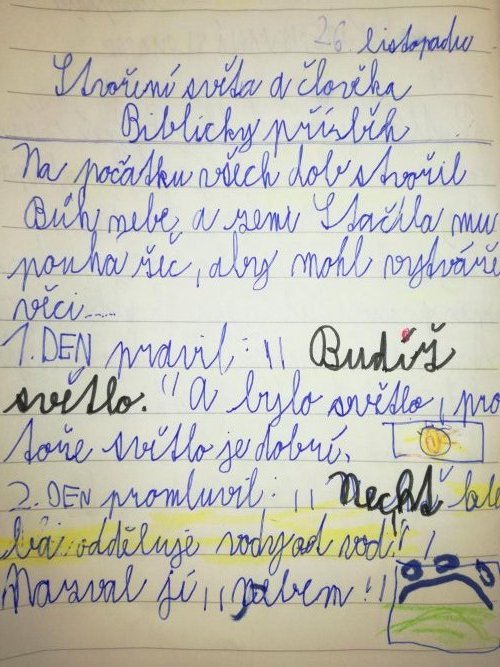 26. listopadu
Stvoření světa a člověka
Biblický příběh
Na počátku všech dob stvořil
Bůh nebe, a zemi Stačila mu
pouhá řeč, aby mohl vytváře
věci....
1. DEN pravil: „ Budiž
světlo. “ A bylo světlo, pro
tože světlo je dobrí.
2. DEN promluvil: „ Nechť kle
bá odděluje vody od vod! “
Nazval jí „ nebem “